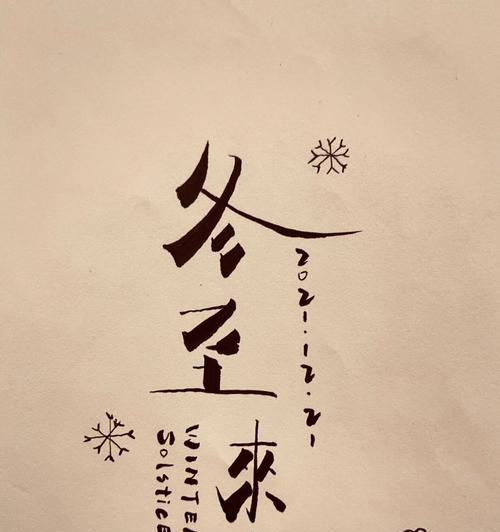 冬至來
2021.12.21
WINTER
Solstice